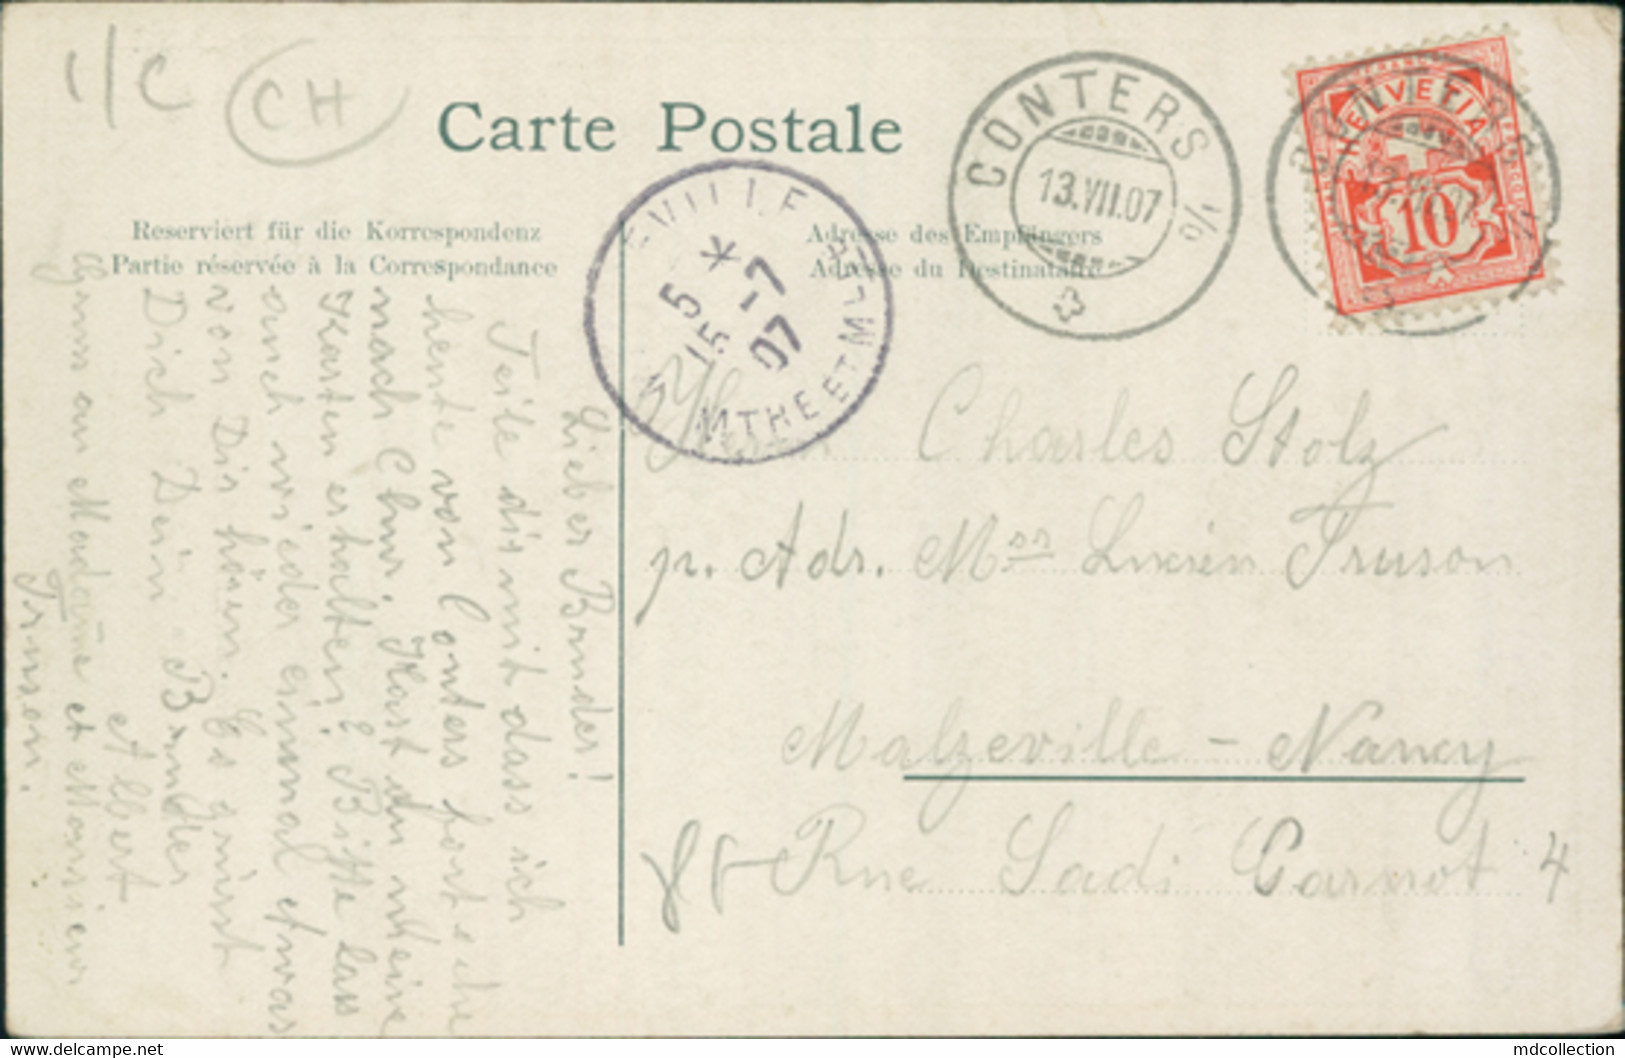 1/C
CH
Carte Postale
Reserviert für die Korrespondenz
Partie réservée à la Correspondance
Adresse des Empfängers
Adresse du Destinataire
CONTERS i/O
13.VII.07
HELVETIA
FRANCO
10
VILLE
5 * 
15 -7
07
MTHE ET M LLE
Lieber Bruder!
Teile dir mit dass ich
heute von Conters fort
nach Chur. Hast du meine
Karten erhalten? Bitte lass
auch wieder einmal etwas
von Dir hören. Es grüsst
Dich Dein Bruder
Albert
Gruss an Madame et Monsieur
Truson.
Herrn Charles Stolz
p. Adr. Mss Lucien Truson
Malzeville - Nancy
85 Rue Sadi Carnot 4
www.delcampe.net
mdcollection